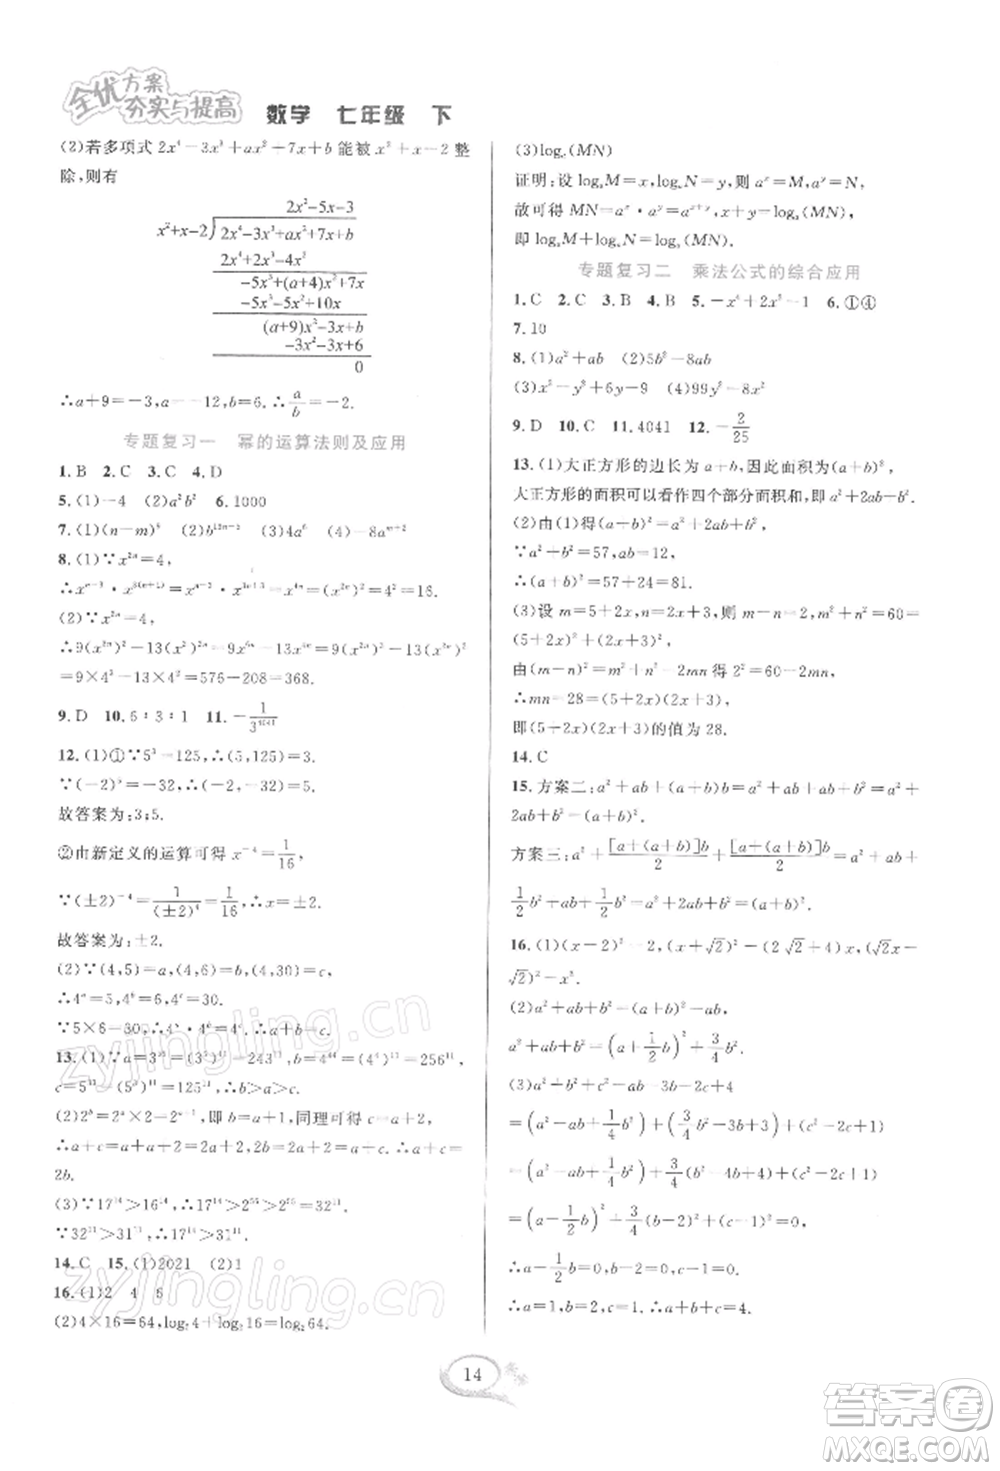 全优方案
夯实与提高 数学 七年级 下
(2)若多项式 2x⁴−3x³+ax²+7x+b 能被 x²+x−2 整
除,则有
2x²-5x-3
x²+x-2)2x⁴-3x³+ax²+7x+b
2x⁴+2x³-4x²
-5x³+(a+4)x²+7x
-5x³-5x²+10x
(a+9)x²-3x+b
-3x²-3x+6
0
∴a+9=−3,a=−12,b=6.∴a/b=−2.
专题复习一 幂的运算法则及应用
1.B 2.C 3.C 4.D
5.(1)−4 (2)a²b² 6.1000
7.(1)(n−m)⁶ (2)b¹²ⁿ⁻² (3)4a⁶ (4)−8aᵐ⁺²
8.(1)∵x²ⁿ=4,
(2)∵x²ⁿ=4,
∴9(x³ⁿ)²−13(x²)²ⁿ=9x⁶ⁿ−13x⁴ⁿ=9(x²ⁿ)³−13(x²ⁿ)²
=9×4³−13×4²=576−208=368.
9.D 10.6∶3∶1 11.
12.(1)①∵5³=125,∴(5,125)=3.
∵(−2)⁵=−32,∴(−2,−32)=5.
故答案为:3;5.
②由新定义的运算可得 x⁻⁴=1/16,
∵(±2)⁻⁴=1/(±2)⁴=1/16,∴x=±2.
故答案为:±2.
(2)∵(4,5)=a,(4,6)=b,(4,30)=c,
∴4ᵃ=5,4ᵇ=6,4ᶜ=30.
∵5×6=30,∴4ᵃ·4ᵇ=4ᶜ.∴a+b=c.
13.(1)∵a=3⁵⁵=(3⁵)¹¹=243¹¹,b=4⁴⁴=(4⁴)¹¹=256¹¹,
c=5³³=(5³)¹¹=125¹¹,∴b>a>c.
(2)2ᵇ=2ᵃ×2=2ᵃ⁺¹,即b=a+1,同理可得c=a+2,
∴a+c=a+a+2=2a+2=2(a+1)=2b,即a+c=
2b.
(3)∵17¹⁴>16¹⁴,∴17¹⁴>2⁵⁶>2⁵⁵=32¹¹,
∵32¹¹>31¹¹,∴17¹⁴>31¹¹.
14.C 15.(1)2021 (2)1
16.(1)2 4 6
(2)4×16=64,log₂4+log₂16=log₂64.
(3)logₐ(MN)
证明:设 logₐM=x,logₐN=y,则 aˣ=M,aʸ=N,
故可得 MN=aˣ·aʸ=aˣ⁺ʸ,x+y=logₐ(MN),
即 logₐM+logₐN=logₐ(MN).
专题复习二 乘法公式的综合应用
1.C 2.C 3.B 4.B 5.−x⁴+2x²−1 6.①④
7.10
8.(1)a²+ab (2)5b²−8ab
(3)x²−y²+6y−9 (4)99y²−8x²
9.D 10.C 11.4041 12.−2/25
13.(1)大正方形的边长为a+b,因此面积为(a+b)²,
大正方形的面积可以看作四个部分面积的和,即a²+2ab+b².
(2)由(1)得(a+b)²=a²+2ab+b².
∵a²+b²=57,ab=12,
∴(a+b)²=57+24=81.
(3)设 m=5+2x,n=2x+3,则 m−n=2,m²+n²=60=
(5+2x)²+(2x+3)².
由(m−n)²=m²+n²−2mn 得 2²=60−2mn,
∴mn=28=(5+2x)(2x+3),
即(5+2x)(2x+3)的值为28.
14.C
15.方案二:a²+ab+(a+b)b=a²+ab+ab+b²=a²+
2ab+b²=(a+b)².
方案三:a²+[a+(a+b)]b/2+[a+(a+b)]b/2=a²+ab+
1/2b²+ab+1/2b²=a²+2ab+b²=(a+b)².
16.(1)(x−2)²+2x,(x+√2)²−(2√2+4)x,(√2x−
√2)²−x².
(2)a²+ab+b²=(a+b)²−ab,
a²+ab+b²=(a+1/2b)²+3/4b².
(3)a²+b²+c²−ab−3b−2c+4
=(a²−ab+1/4b²)+(3/4b²−3b+3)+(c²−2c+1)
=(a²−ab+1/4b²)+3/4(b²−4b+4)+(c²−2c+1)
=(a−1/2b)²+3/4(b−2)²+(c−1)²=0,
∴a−1/2b=0,b−2=0,c−1=0,
∴a=1,b=2,c=1,∴a+b+c=4.
14
zyjingling.cn
zyjingling.cn
答案圈
MXQE.COM